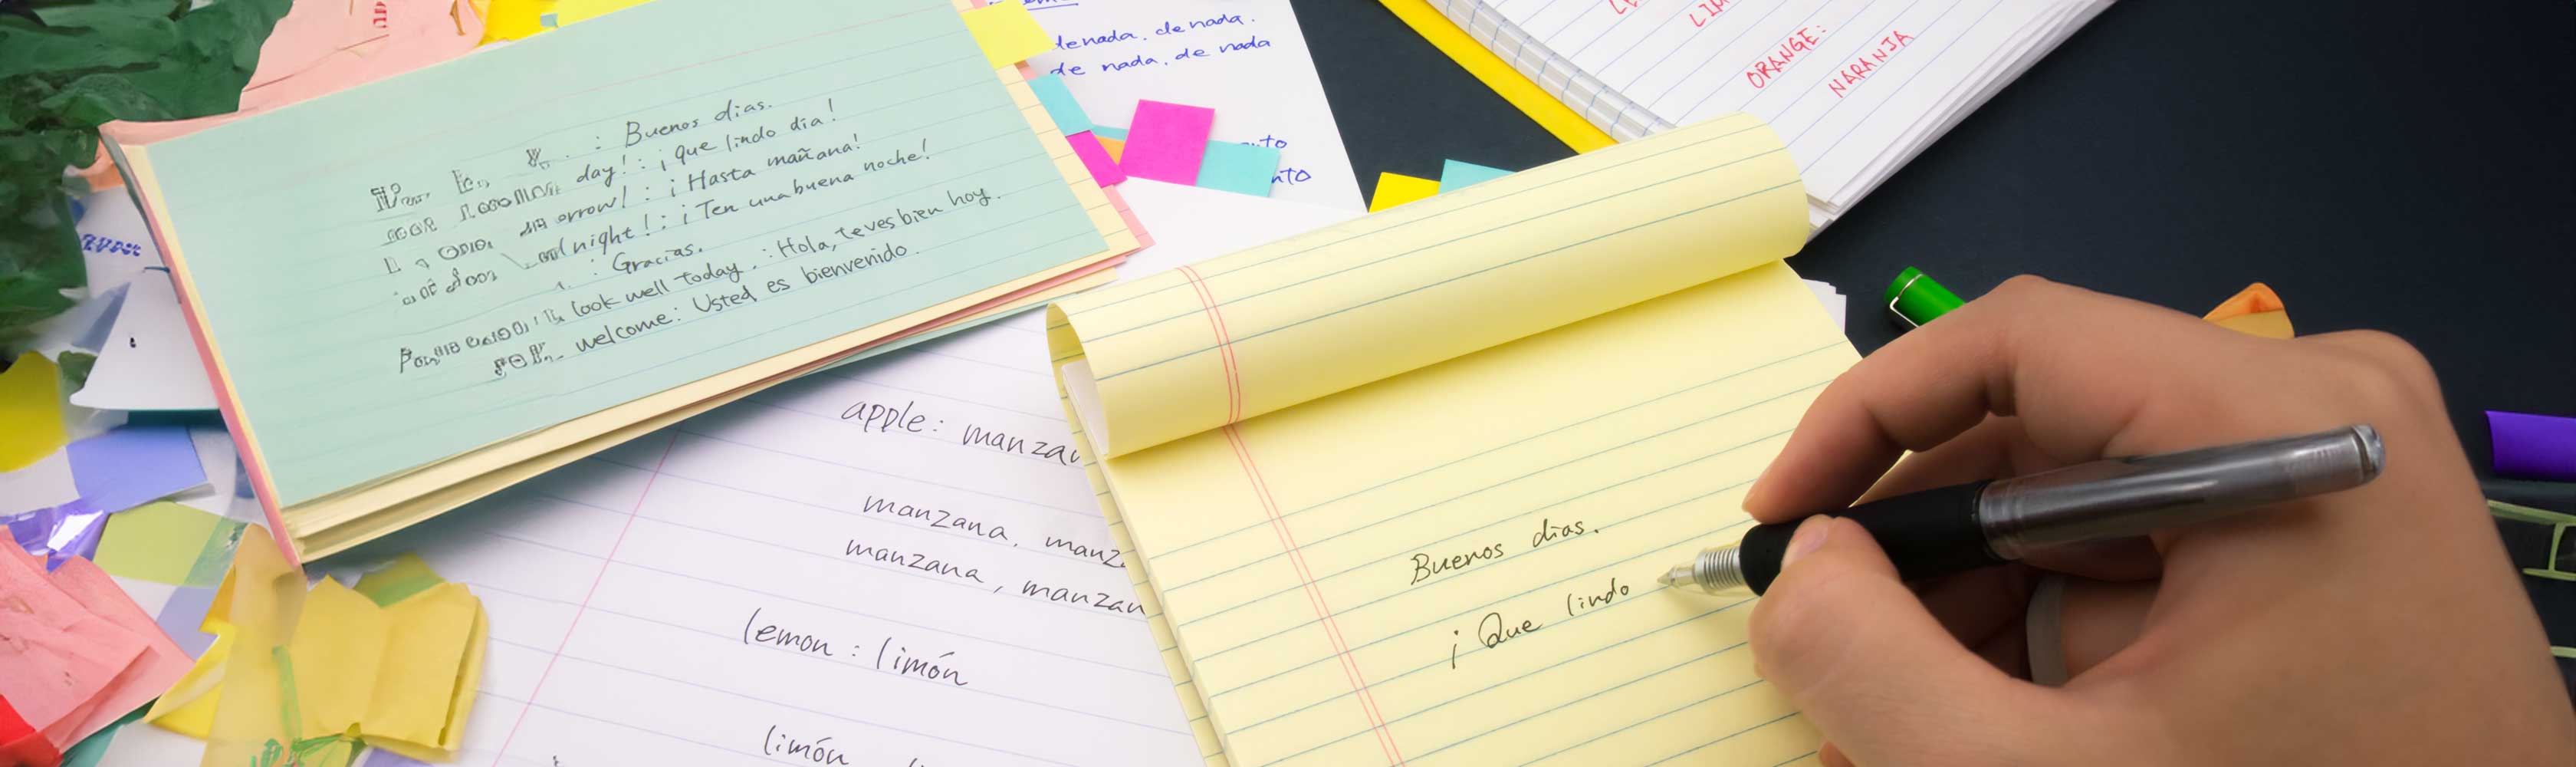 : Buenos dias.
day! : ¡ que lindo dia!
orrow! : ¡ Hasta mañana!
night! : ¡ Ten una buena noche!
: Gracias.
look well today. : Hola, te ves bien hoy.
welcome: Usted es bienvenido.
denada, de nada.
de nada, de nada
nto
nto
ORANGE:
NARANJA
apple: manzan
manzana, manz
manzana, manzan
lemon : limón
limón
Buenos dias.
¡ Que lindo